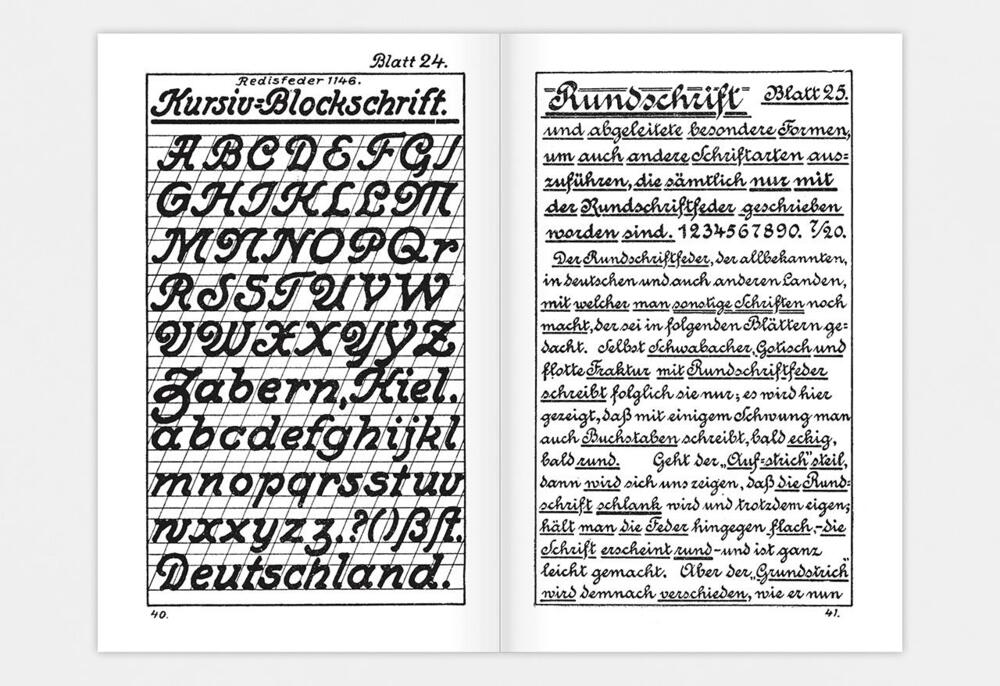 Blatt 24.
Redisfeder 1146.
Kursiv=Blockschrift.
A B C D E F G I
G H I J K L L M
M N N O P Q r
R S S T U V W
V W X X Y Y Z
Zabern, Kiel.
abcdefghijkl
mnopqrsstuv
wxxyzz.?()ßſt.
Deutschland.
40.
Rundschrift Blatt 25.
und abgeleitete besondere Formen,
um auch andere Schriftarten aus=
zuführen, die sämtlich nur mit
der Rundschriftfeder geschrieben
worden sind. 1234567890. 7/20.
Der Rundschriftfeder, der allbekannten,
in deutschen und auch anderen Landen,
mit welcher man sonstige Schriften noch
macht, der sei in folgenden Blättern ge=
dacht. Selbst Schwabacher, Gotisch und
flotte Fraktur mit Rundschriftfeder
schreibt folglich sie nur; es wird hier
gezeigt, daß mit einigem Schwung man
auch Buchstaben schreibt, bald eckig,
bald rund. Geht der „Auf=strich" steil,
dann wird sich uns zeigen, daß die Rund=
schrift schlank wird und trotzdem eigen;
hält man die Feder hingegen flach,-die
Schrift erscheint rund-und ist ganz
leicht gemacht. Aber der „Grundstrich"
wird demnach verschieden, wie er nun
41.